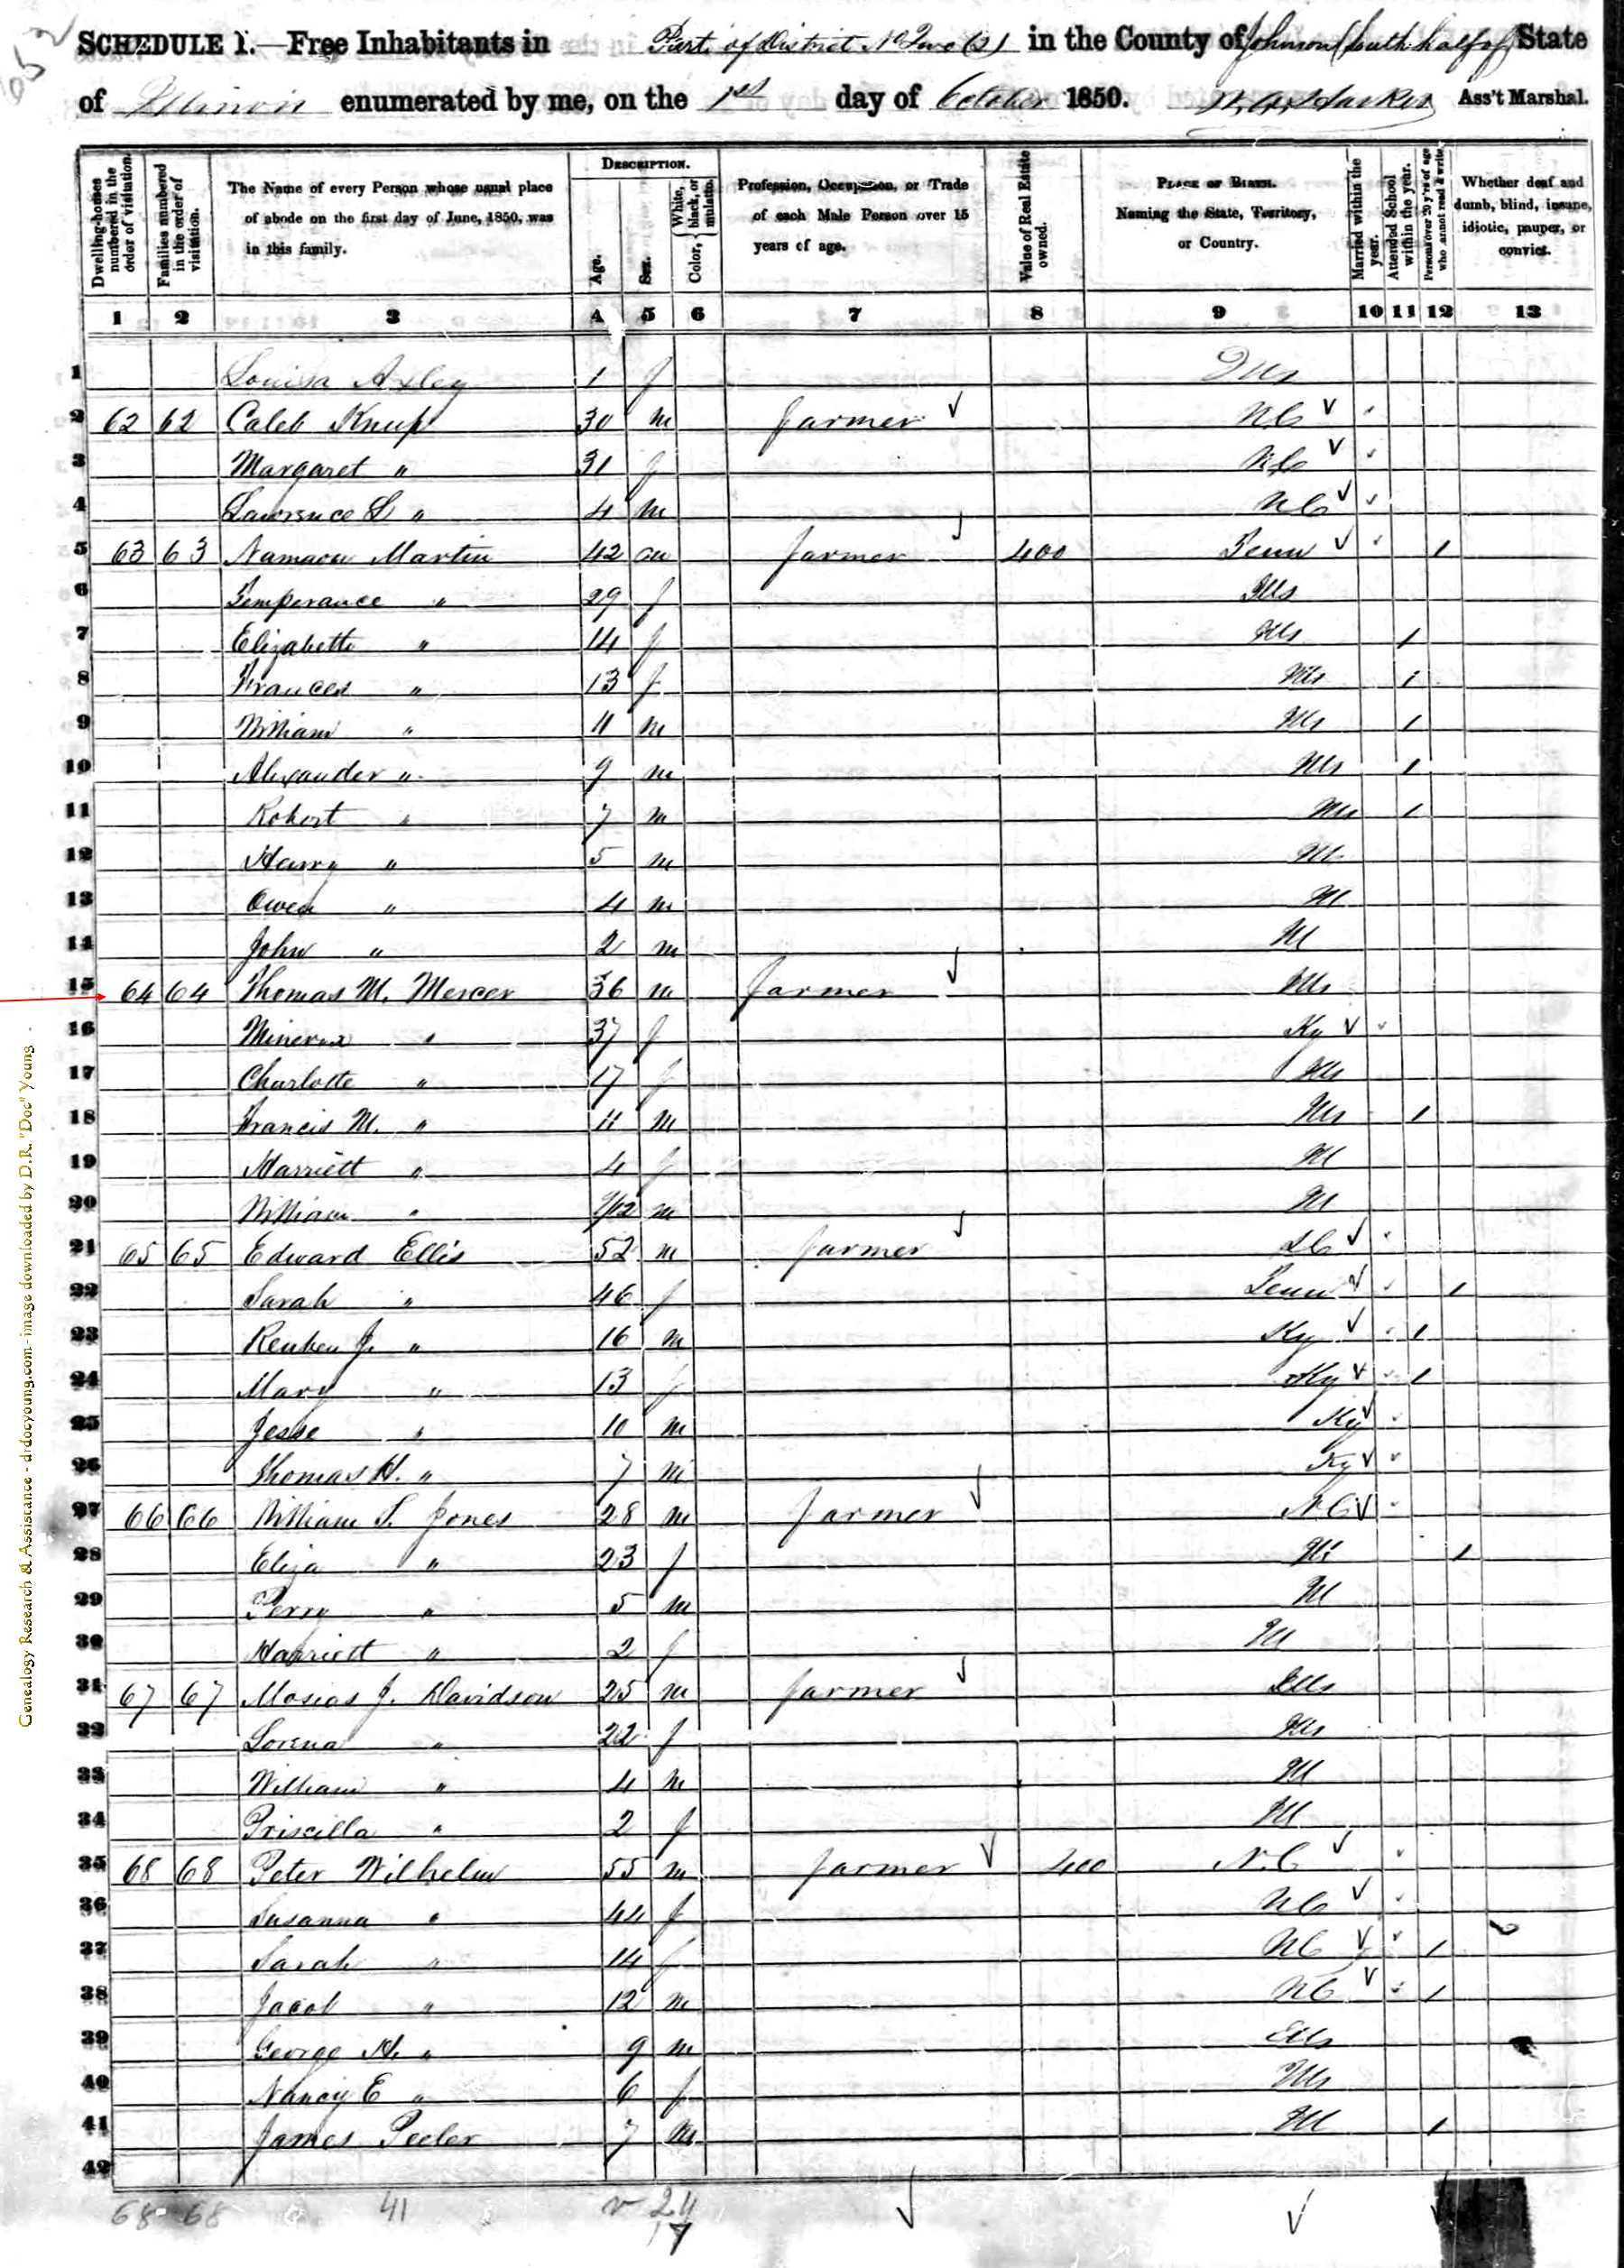 SCHEDULE 1.—Free Inhabitants in Part of District No Two (2) in the County of Johnson (South half of) State
of Illinois enumerated by me, on the 1st day of October 1850. Ass't Marshal.
Dwelling-houses numbered in the order of visitation.
Families numbered in the order of visitation.
The Name of every Person whose usual place of abode on the first day of June, 1850, was in this family.
DESCRIPTION.
Age.
Sex.
Color, White, black, or mulatto.
Profession, Occupation, or Trade of each Male Person over 15 years of age.
Value of Real Estate owned.
PLACE OF BIRTH. Naming the State, Territory, or Country.
Married within the year.
Attended School within the year.
Persons over 20 y'rs of age who cannot read & write.
Whether deaf and dumb, blind, insane, idiotic, pauper, or convict.
1 2 3 4 5 6 7 8 9 10 11 12 13
1 Louisa Axley 1 f Ills
2 62 62 Caleb Knup 30 m farmer NC
3 Margaret " 31 f NC
4 Lawrence L " 4 m NC
5 63 63 Martin 42 m farmer 400 Tenn 1
6 Temperance " 29 f Ills
7 Elizabeth " 14 f Ills 1
8 Frances " 13 f Ills 1
9 William " 11 m Ills 1
10 Alexander " 9 m Ills 1
11 Robert " 7 m Ills 1
12 Henry " 5 m Ill
13 Owen " 4 m Ill
14 John " 2 m Ill
15 64 64 Thomas M. Mercer 36 m farmer Ills
16 Minerva " 37 f Ky
17 Charlotte " 17 f Ills
18 Francis M. " 11 m Ills 1
19 Harriett " 4 f Ill
20 William " m Ill
21 65 65 Edward Ellis 52 m farmer SC
22 Sarah " 46 f Tenn 1
23 Reuben J. " 16 m Ky 1
24 Mary " 13 f Ky 1
25 Jesse " 10 m Ky
26 Thomas H. " 7 m Ky
27 66 66 William S. Jones 28 m farmer NC
28 Eliza " 23 f Ill 1
29 Perry " 5 m Ill
30 Harriett " 2 f Ill
31 67 67 Mosias J. Davidson 25 m farmer Ills
32 Lorena " 22 f Ills
33 William " 4 m Ill
34 Priscilla " 2 f Ill
35 68 68 Peter Wilhelm 55 m farmer 400 N.C
36 Susanna " 44 f NC
37 Sarah " 14 f NC 1
38 Jacob " 12 m NC 1
39 George H. " 9 m Ills
40 Nancy E " 6 f Ills
41 James Peeler 7 m Ill 1
42
68 68 41 24
17
Genealogy Research & Assistance - drdocyoung.com - image downloaded by D.R. "Doc" Young